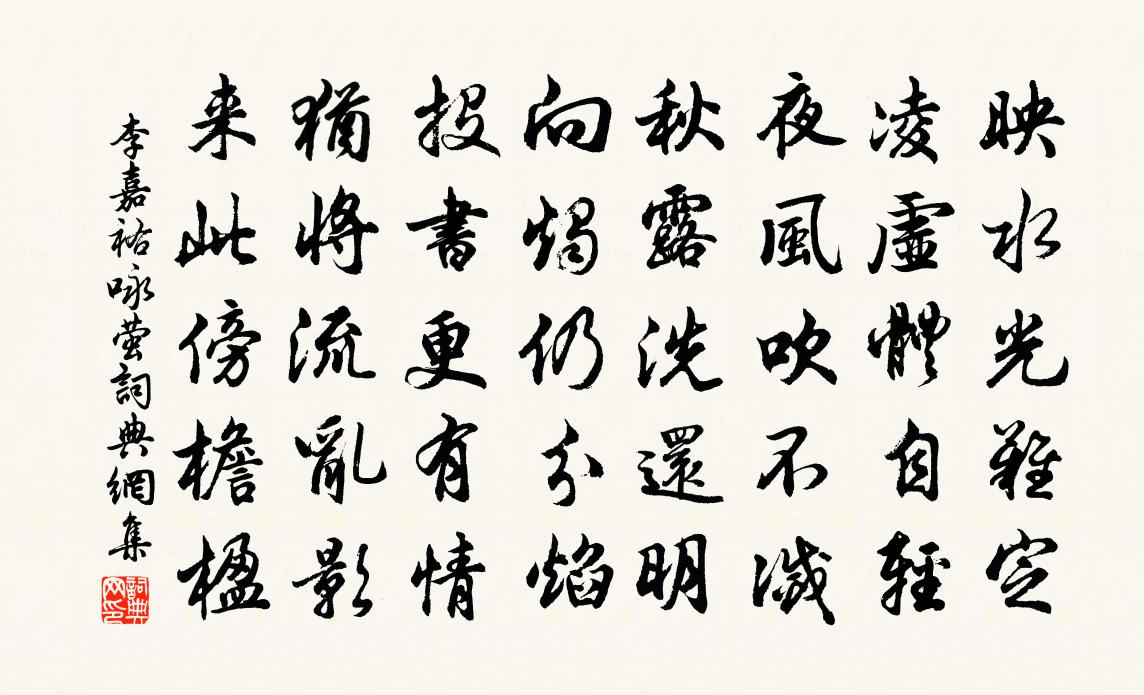 映水光難定
凌虛體自輕
夜風吹不滅
秋露洗還明
向燭仍分焰
投書更有情
猶將流亂影
来此傍檐楹
李嘉祐咏萤詞典網集
詞典網印